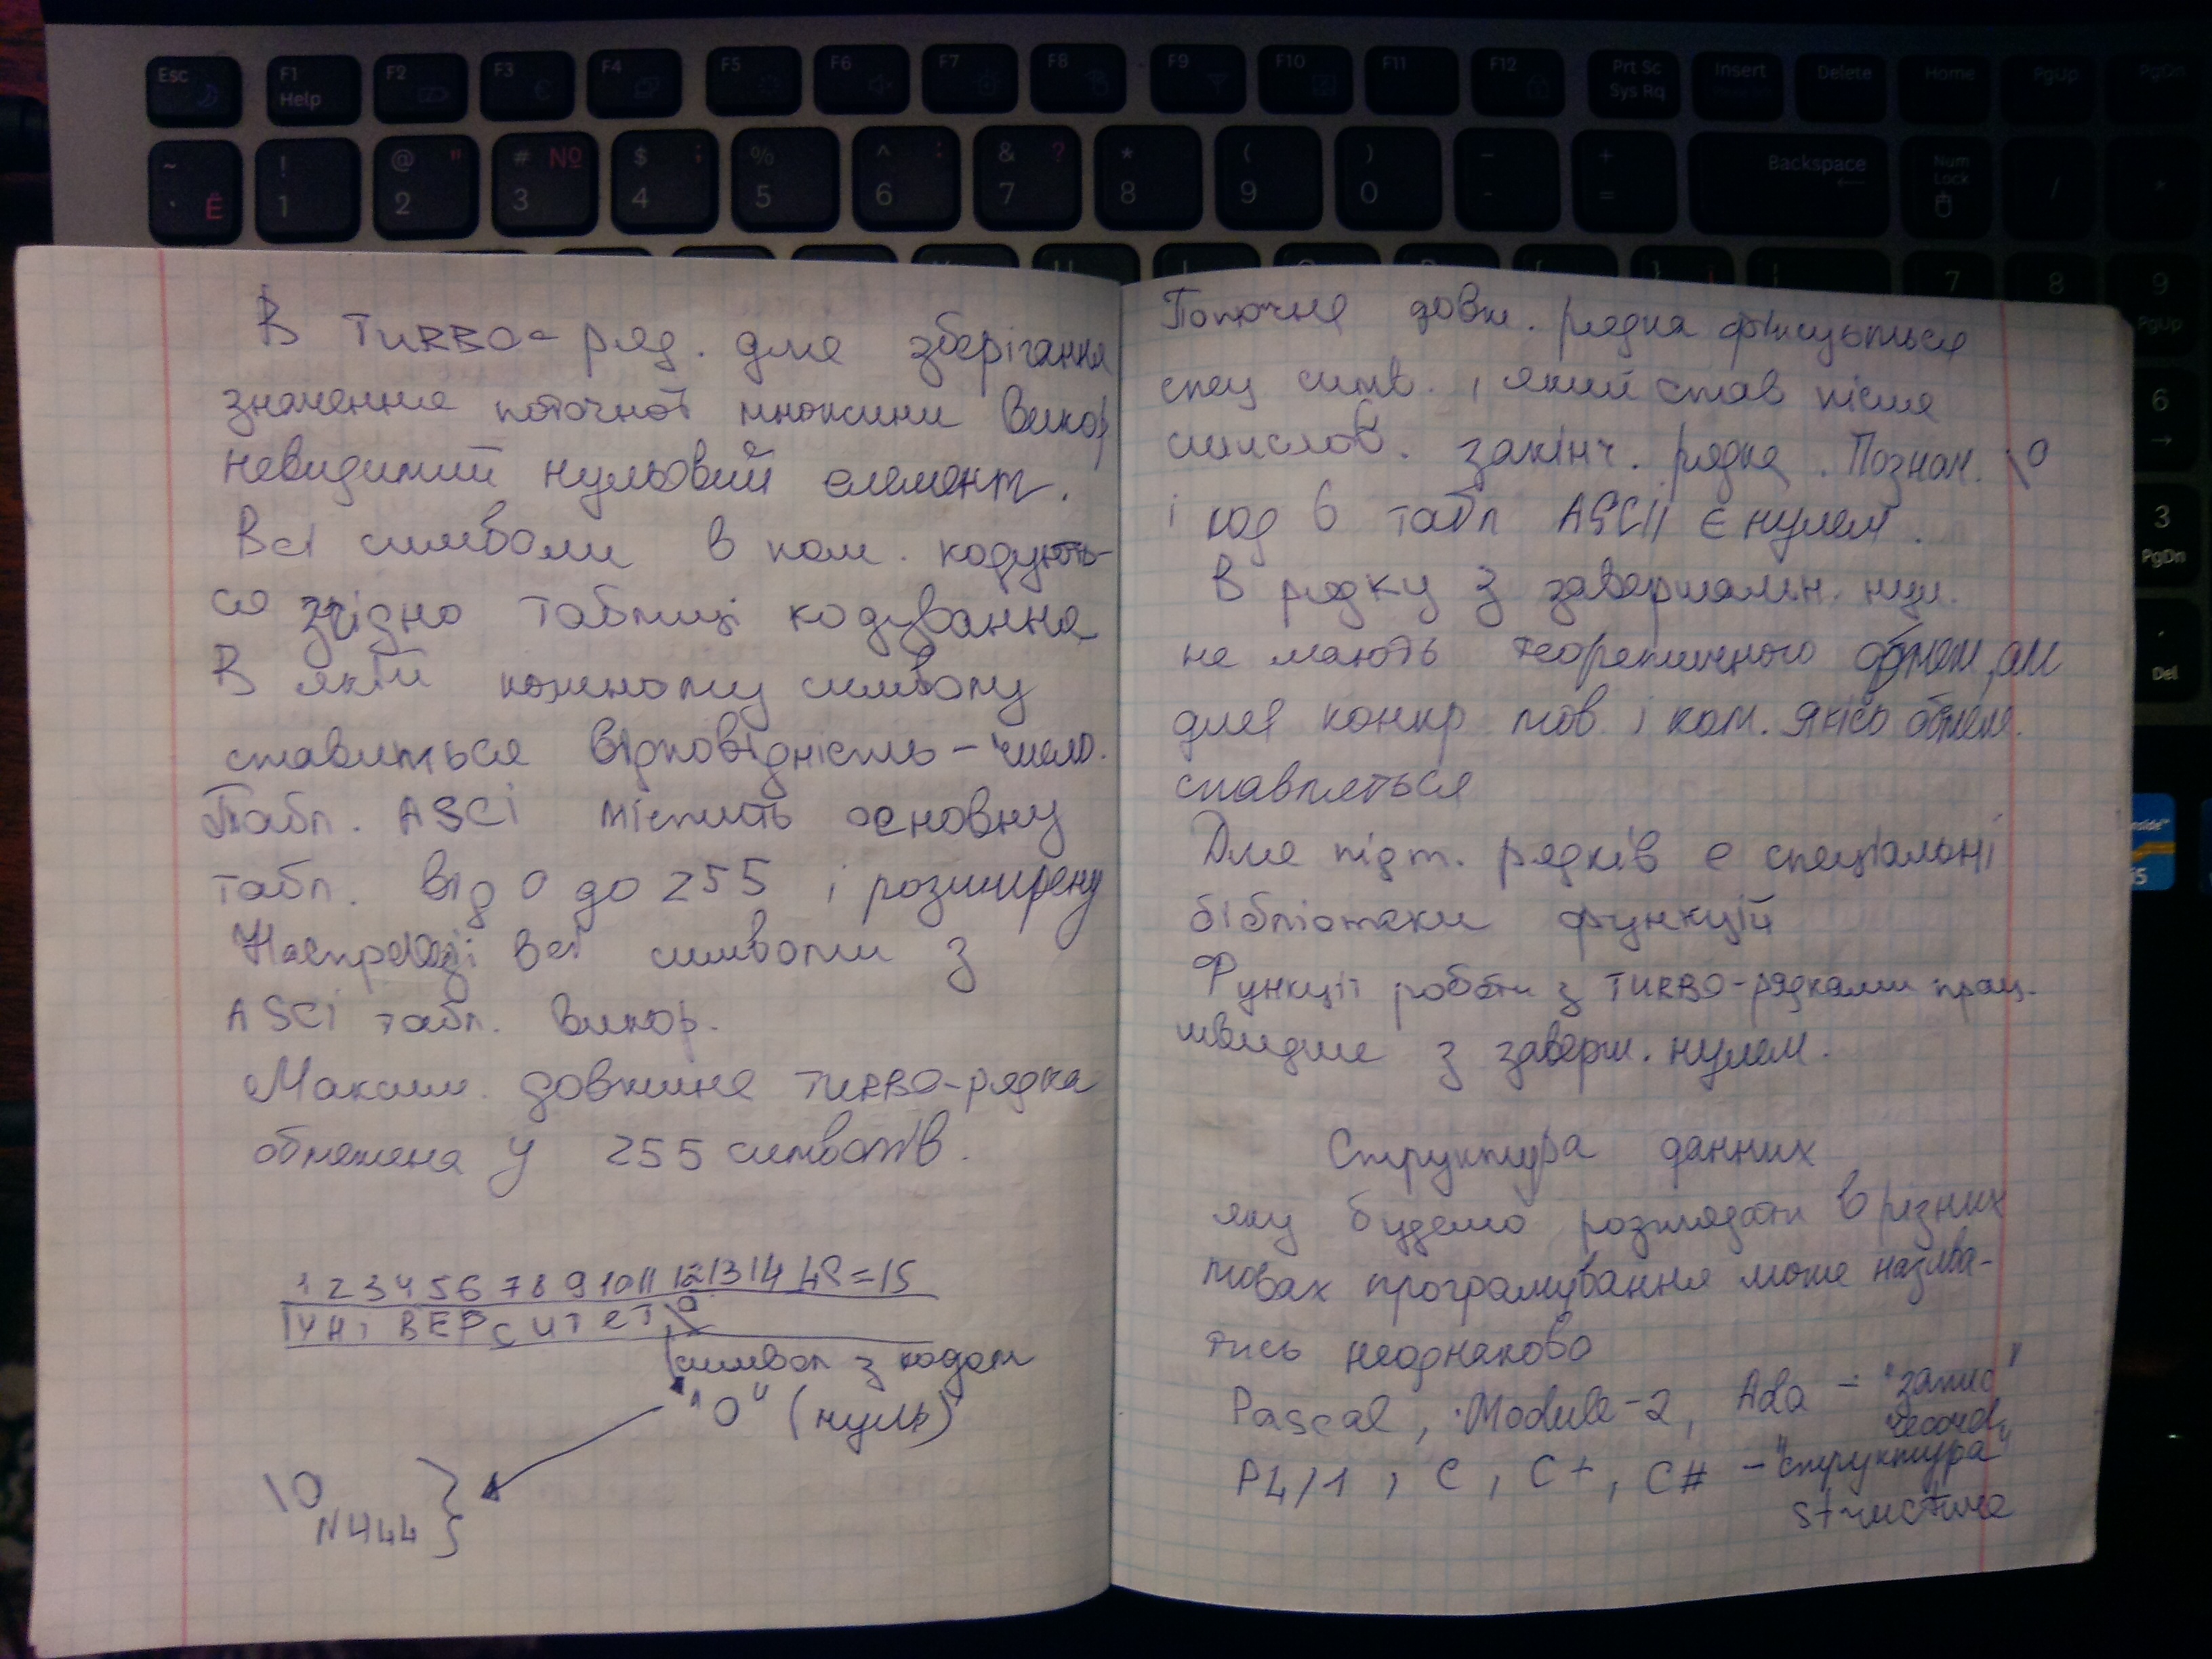 Esc F1 F2 F3 F4 F5 F6 F7 F8 F9 F10 F11 F12 Prt Sc Insert Delete Home PgUp PgDn
Help Sys Rq
~ ! @ " # № $ ; % ^ : & ? * ( ) _ + Backspace Num Lock / *
Ё 1 2 3 4 5 6 7 8 9 0 - =
7 8 9
PgUp
6
3
PgDn
.
Del
В TURBO-ряд. для зберігання
значення поточної множини викор
невидимий нульовий елемент.
Всі символи в ком. кодують-
ся згідно таблиці кодування
В якій кожному символу
ставиться відповідність - число.
Табл. ASCI містить основну
табл. від 0 до 255 і розширену
Насправді всі символи з
ASCI табл. викор.
Максим. довжина TURBO-рядка
обмежена у 255 символів.
1 2 3 4 5 6 7 8 9 10 11 12 13 14 15
УНІВЕРСИТЕТ \0
символ з кодом
"0" (нуль)
\0
NULL
Поточна довж. рядка фіксується
спец симв., який став після
смислов. закінч. рядка. Познач. \0
і код в табл ASCII є нулем.
В рядку з завершальн. нул.
не мають теоретичного обмеж, ал
для конкр мов і ком. якісь обмеж.
ставляться
Для підт. рядків є спеціальні
бібліотеки функцій
Функції роботи з TURBO-рядками прац.
швидше з заверш. нулем.
Структура данних
яку будемо розглядати в різних
мовах програмування може назива-
тись неоднаково
Pascal, Module-2, Ada - "запис"
record
PL/1, C, C+, C# - "структура"
structure